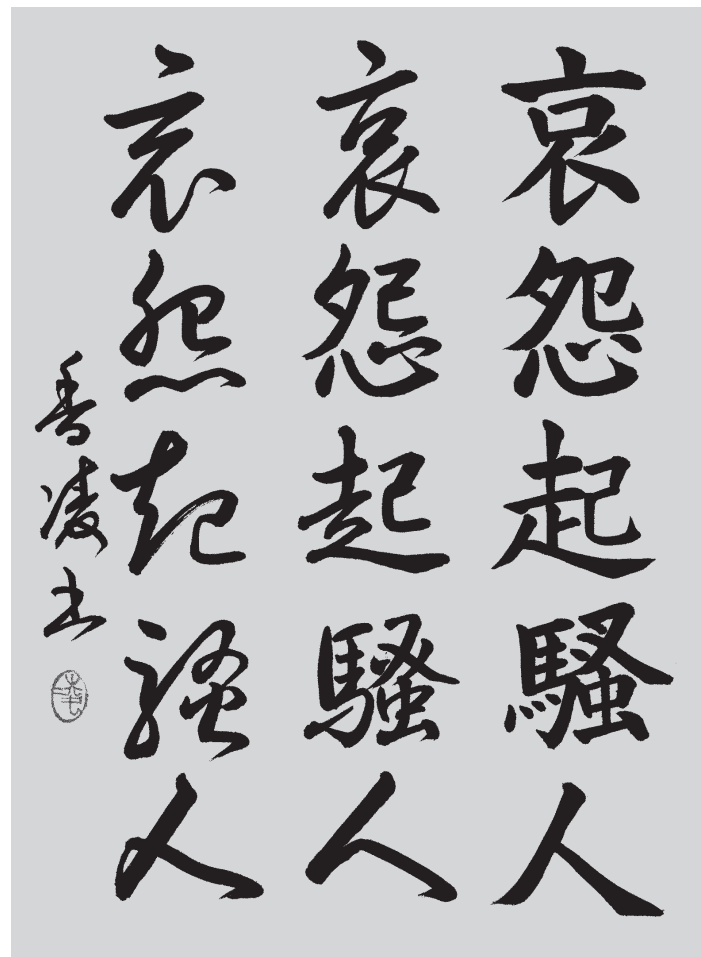 哀怨起騷人
哀怨起騷人
哀怨起騷人
香凌书